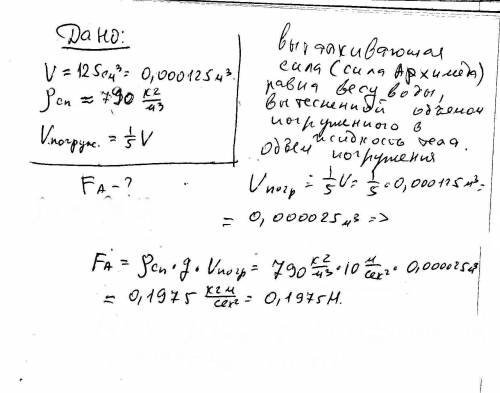 Дано:
V = 125 см³ = 0,000125 м³.
ρсп ≈ 790 кг/м³
Vпогруж. = 1/5 V
FА - ?
выталкивающая
сила (сила Архимеда)
равна весу воды,
вытесненной объемом
погруженного в
жидкость тела.
Объем погружения
Vпогр = 1/5 V = 1/5 · 0,000125 м³ =
= 0,000025 м³ =>
FА = ρсп · g · Vпогр = 790 кг/м³ · 10 м/сек² · 0,000025 м³
= 0,1975 кг м/сек² = 0,1975 Н.